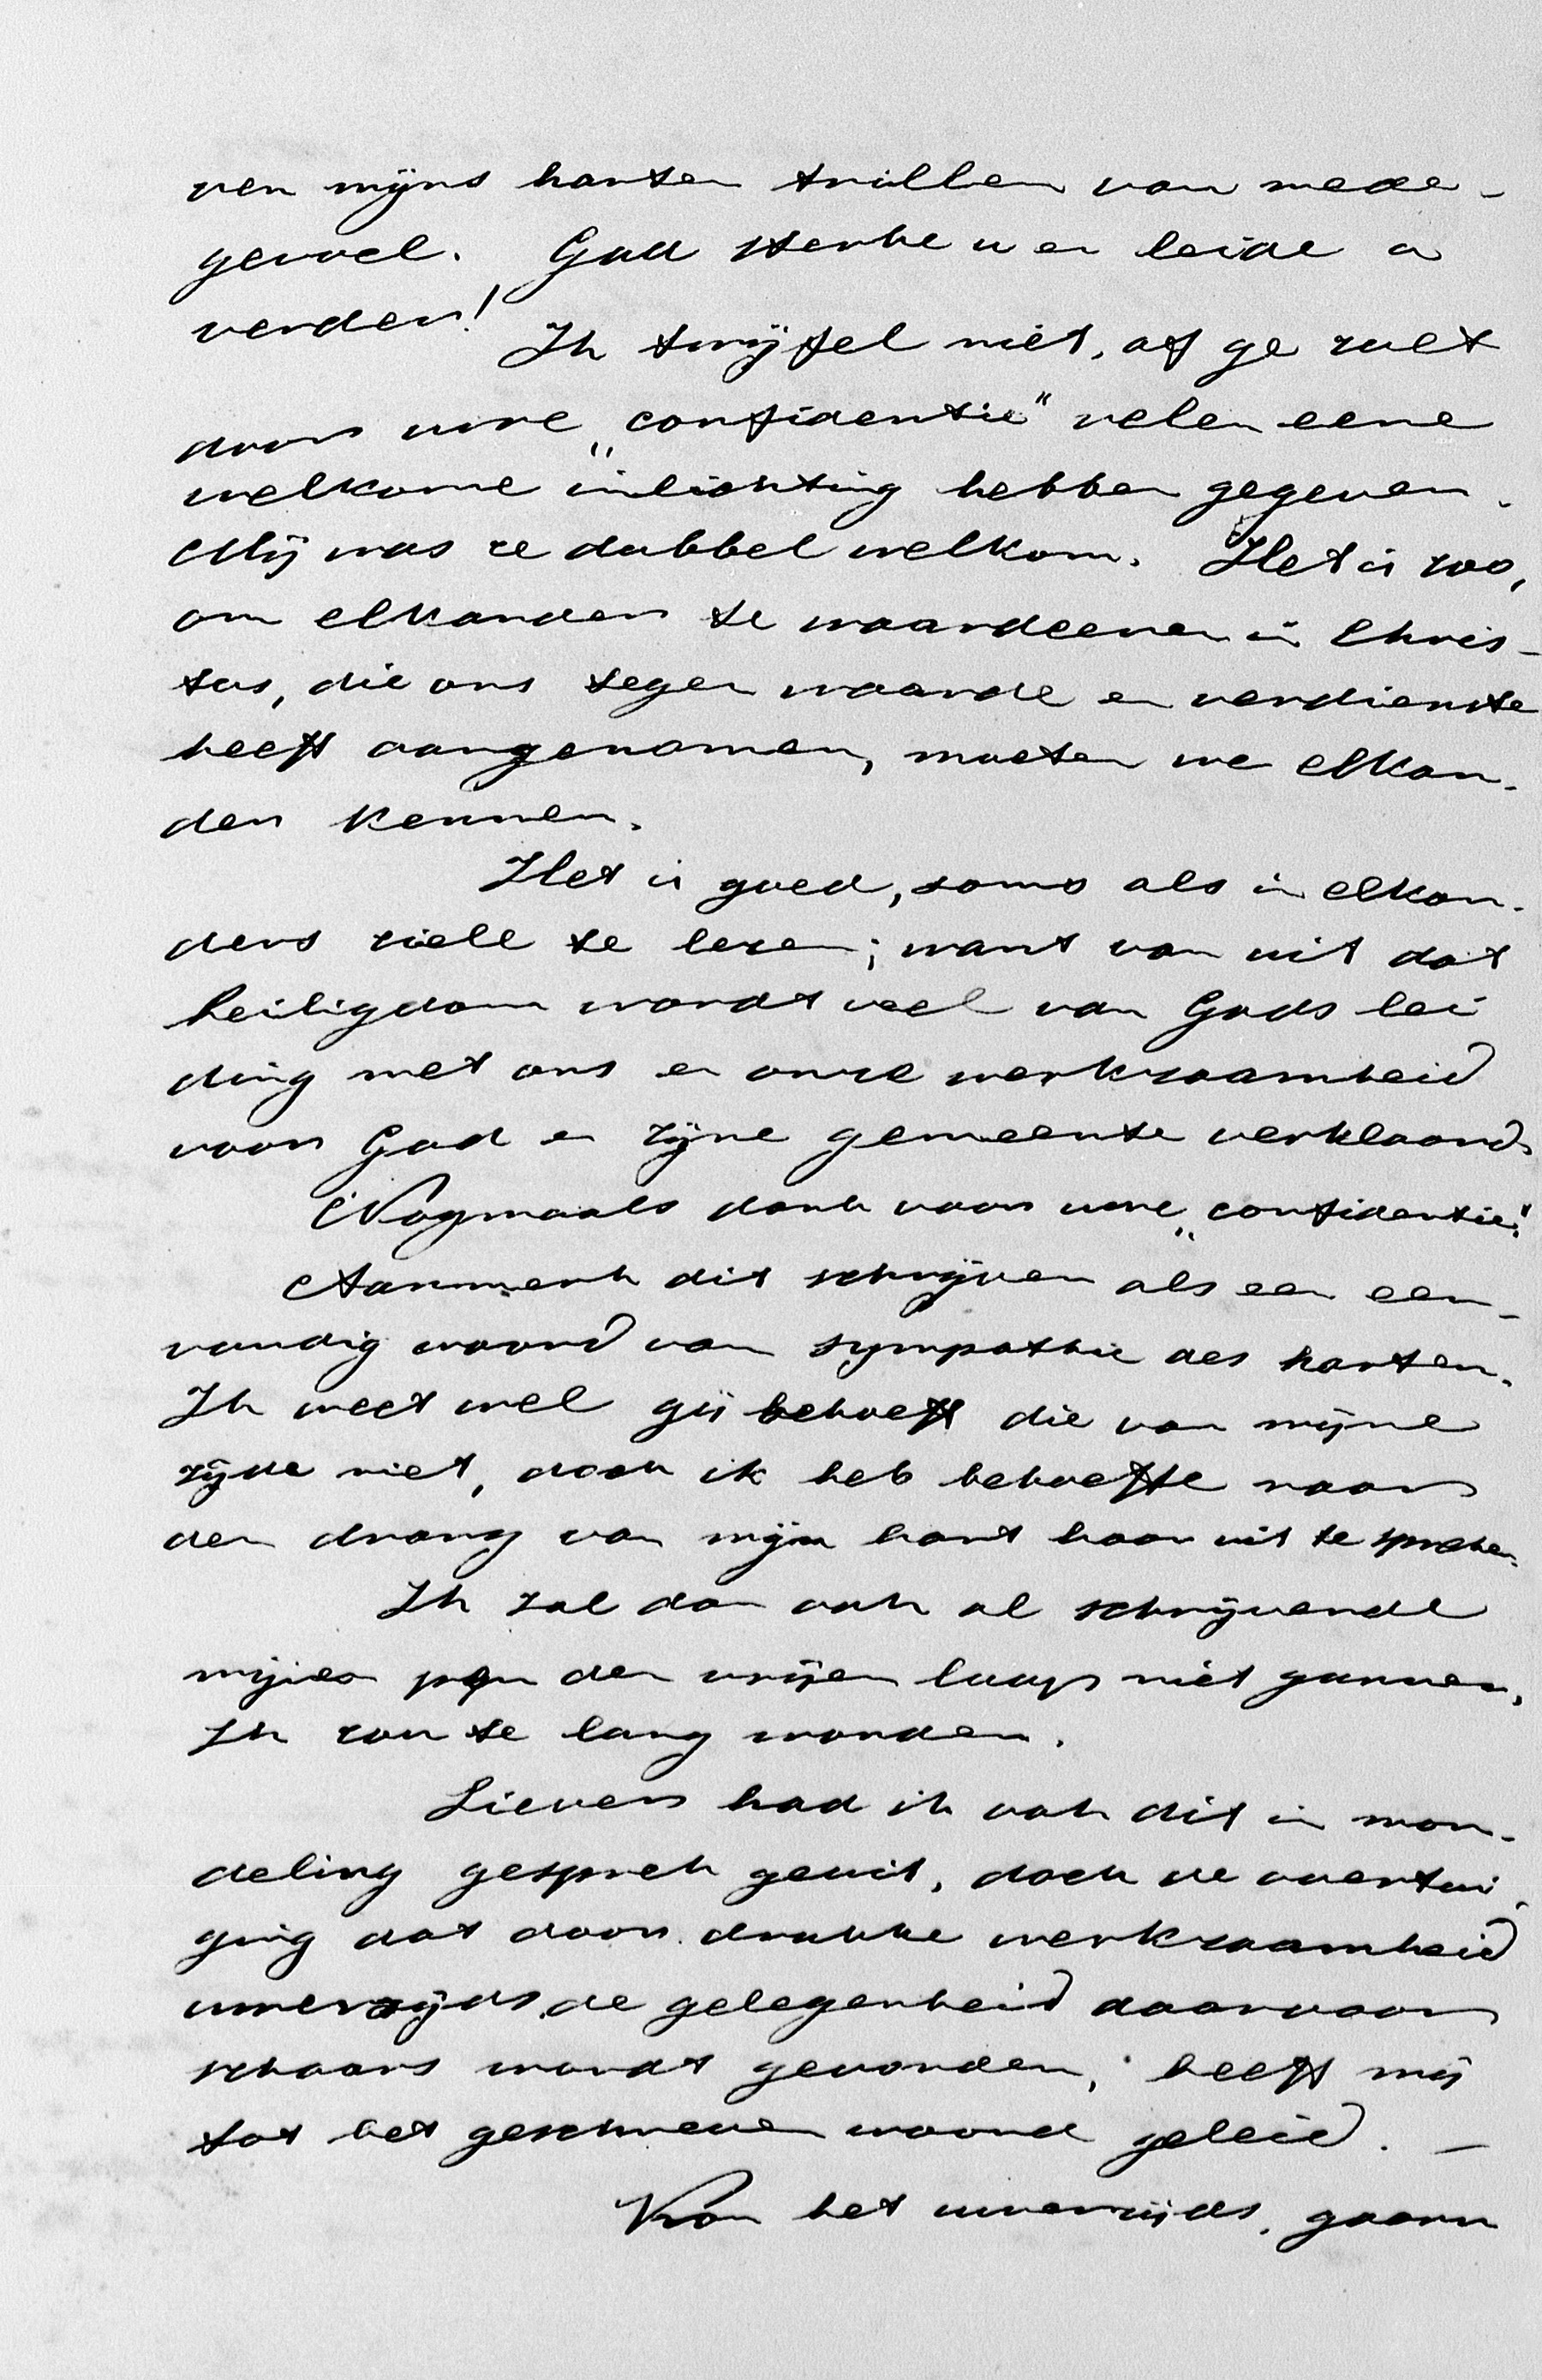 ren mijns harten trillen van mede-
gevoel. God sterke u en leide u
verder!
Ik twijfel niet, of ge zult
door uwe „confidentie" velen eene
welkome inlichting hebben gegeven.
Mij was ze dubbel welkom. Het is zoo,
om elkander te waardeeren in Chris-
tus, die ons tegen waarde en verdienste
heeft aangenomen, moeten we elkan-
der kennen.
Het is goed, soms als in elkan-
ders ziele te lezen; want van uit dat
heiligdom wordt veel van Gods lei
ding met ons en onze werkzaamheid
voor God en zijne gemeente verklaard.
Nogmaals dank voor uwe „confidentie".
Aanmerk dit schrijven als een een-
voudig woord van sympathie des harten.
Ik weet wel gij behoeft die van mijne
zijde niet, doch ik heb behoefte naar
den drang van mijn hart haar uit te spreken.
Ik zal dan ook al schrijvende
mijne pen den vrijen loop niet gunnen,
Ik zou te lang worden.
Liever had ik ook dit in mon-
deling gesprek geuit, doch de overtui-
ging dat door drukke werkzaamheid
uwerzijds de gelegenheid daarvoor
schaars wordt gevonden, heeft mij
tot het geschreven woord geleid. —
Kon het uwerzijds, gaarn